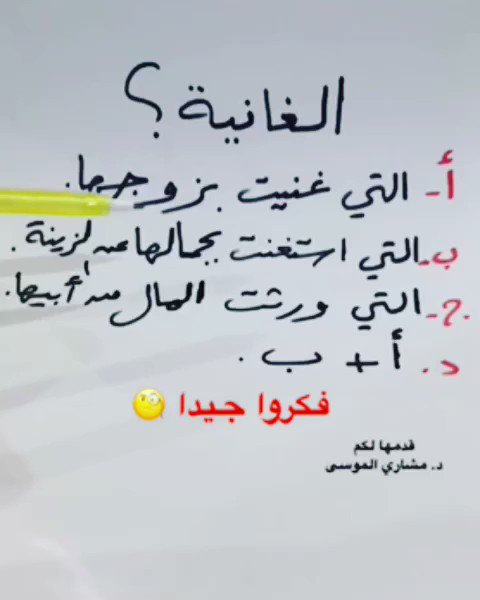 الغانية ؟
أ- التي غنيت بزوجها.
ب- التي استغنت بجمالها عن الزينة.
ج- التي ورثت المال من أبيها.
د. أ + ب .
فكروا جيدا 🧐
قدمها لكم
د. مشاري الموسى